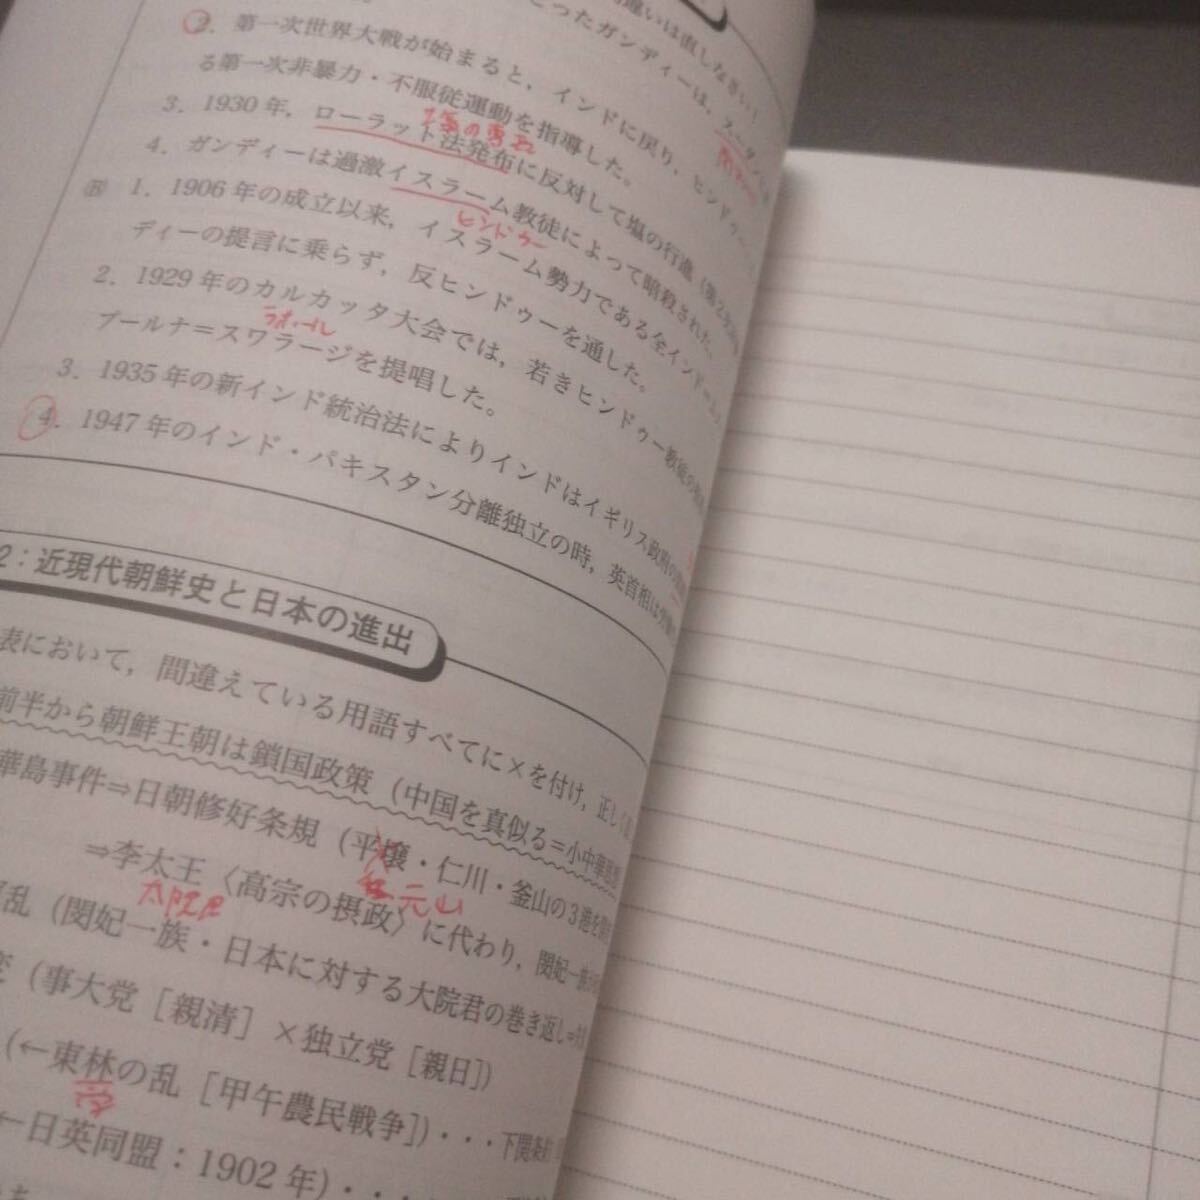 違いは直しなさい！
ったガンディーは，
2．第一次世界大戦が始まると，インドに戻り，ヒンドゥー
る第一次非暴力・不服従運動を指導した。
3．1930年，ローラット法発布に反対して塩の行進（第2次
塩の専売
4．ガンディーは過激イスラーム教徒によって暗殺された。
ヒンドゥー
Ⓑ 1．1906年の成立以来，イスラーム勢力である全インド＝ム
ディーの提言に乗らず，反ヒンドゥーを通した。
2．1929年のカルカッタ大会では，若きヒンドゥー教徒の
ラホール
プールナ＝スワラージを提唱した。
3．1935年の新インド統治法によりインドはイギリス政府の
4．1947年のインド・パキスタン分離独立の時，英首相は労働
2：近現代朝鮮史と日本の進出
表において，間違えている用語すべてに×を付け，正し
前半から朝鮮王朝は鎖国政策（中国を真似る＝小中華思想
華島事件⇒日朝修好条規（平壌・仁川・釜山の3港を
元山
⇒李太王〈高宗の摂政〉に代わり，閔妃一族
大院君
乱（閔妃一族・日本に対する大院君の巻き返し⇒
変（事大党［親清］×独立党［親日］）
（←東林の乱［甲午農民戦争］）・・・下関条約
学
←日英同盟：1902年）・・・